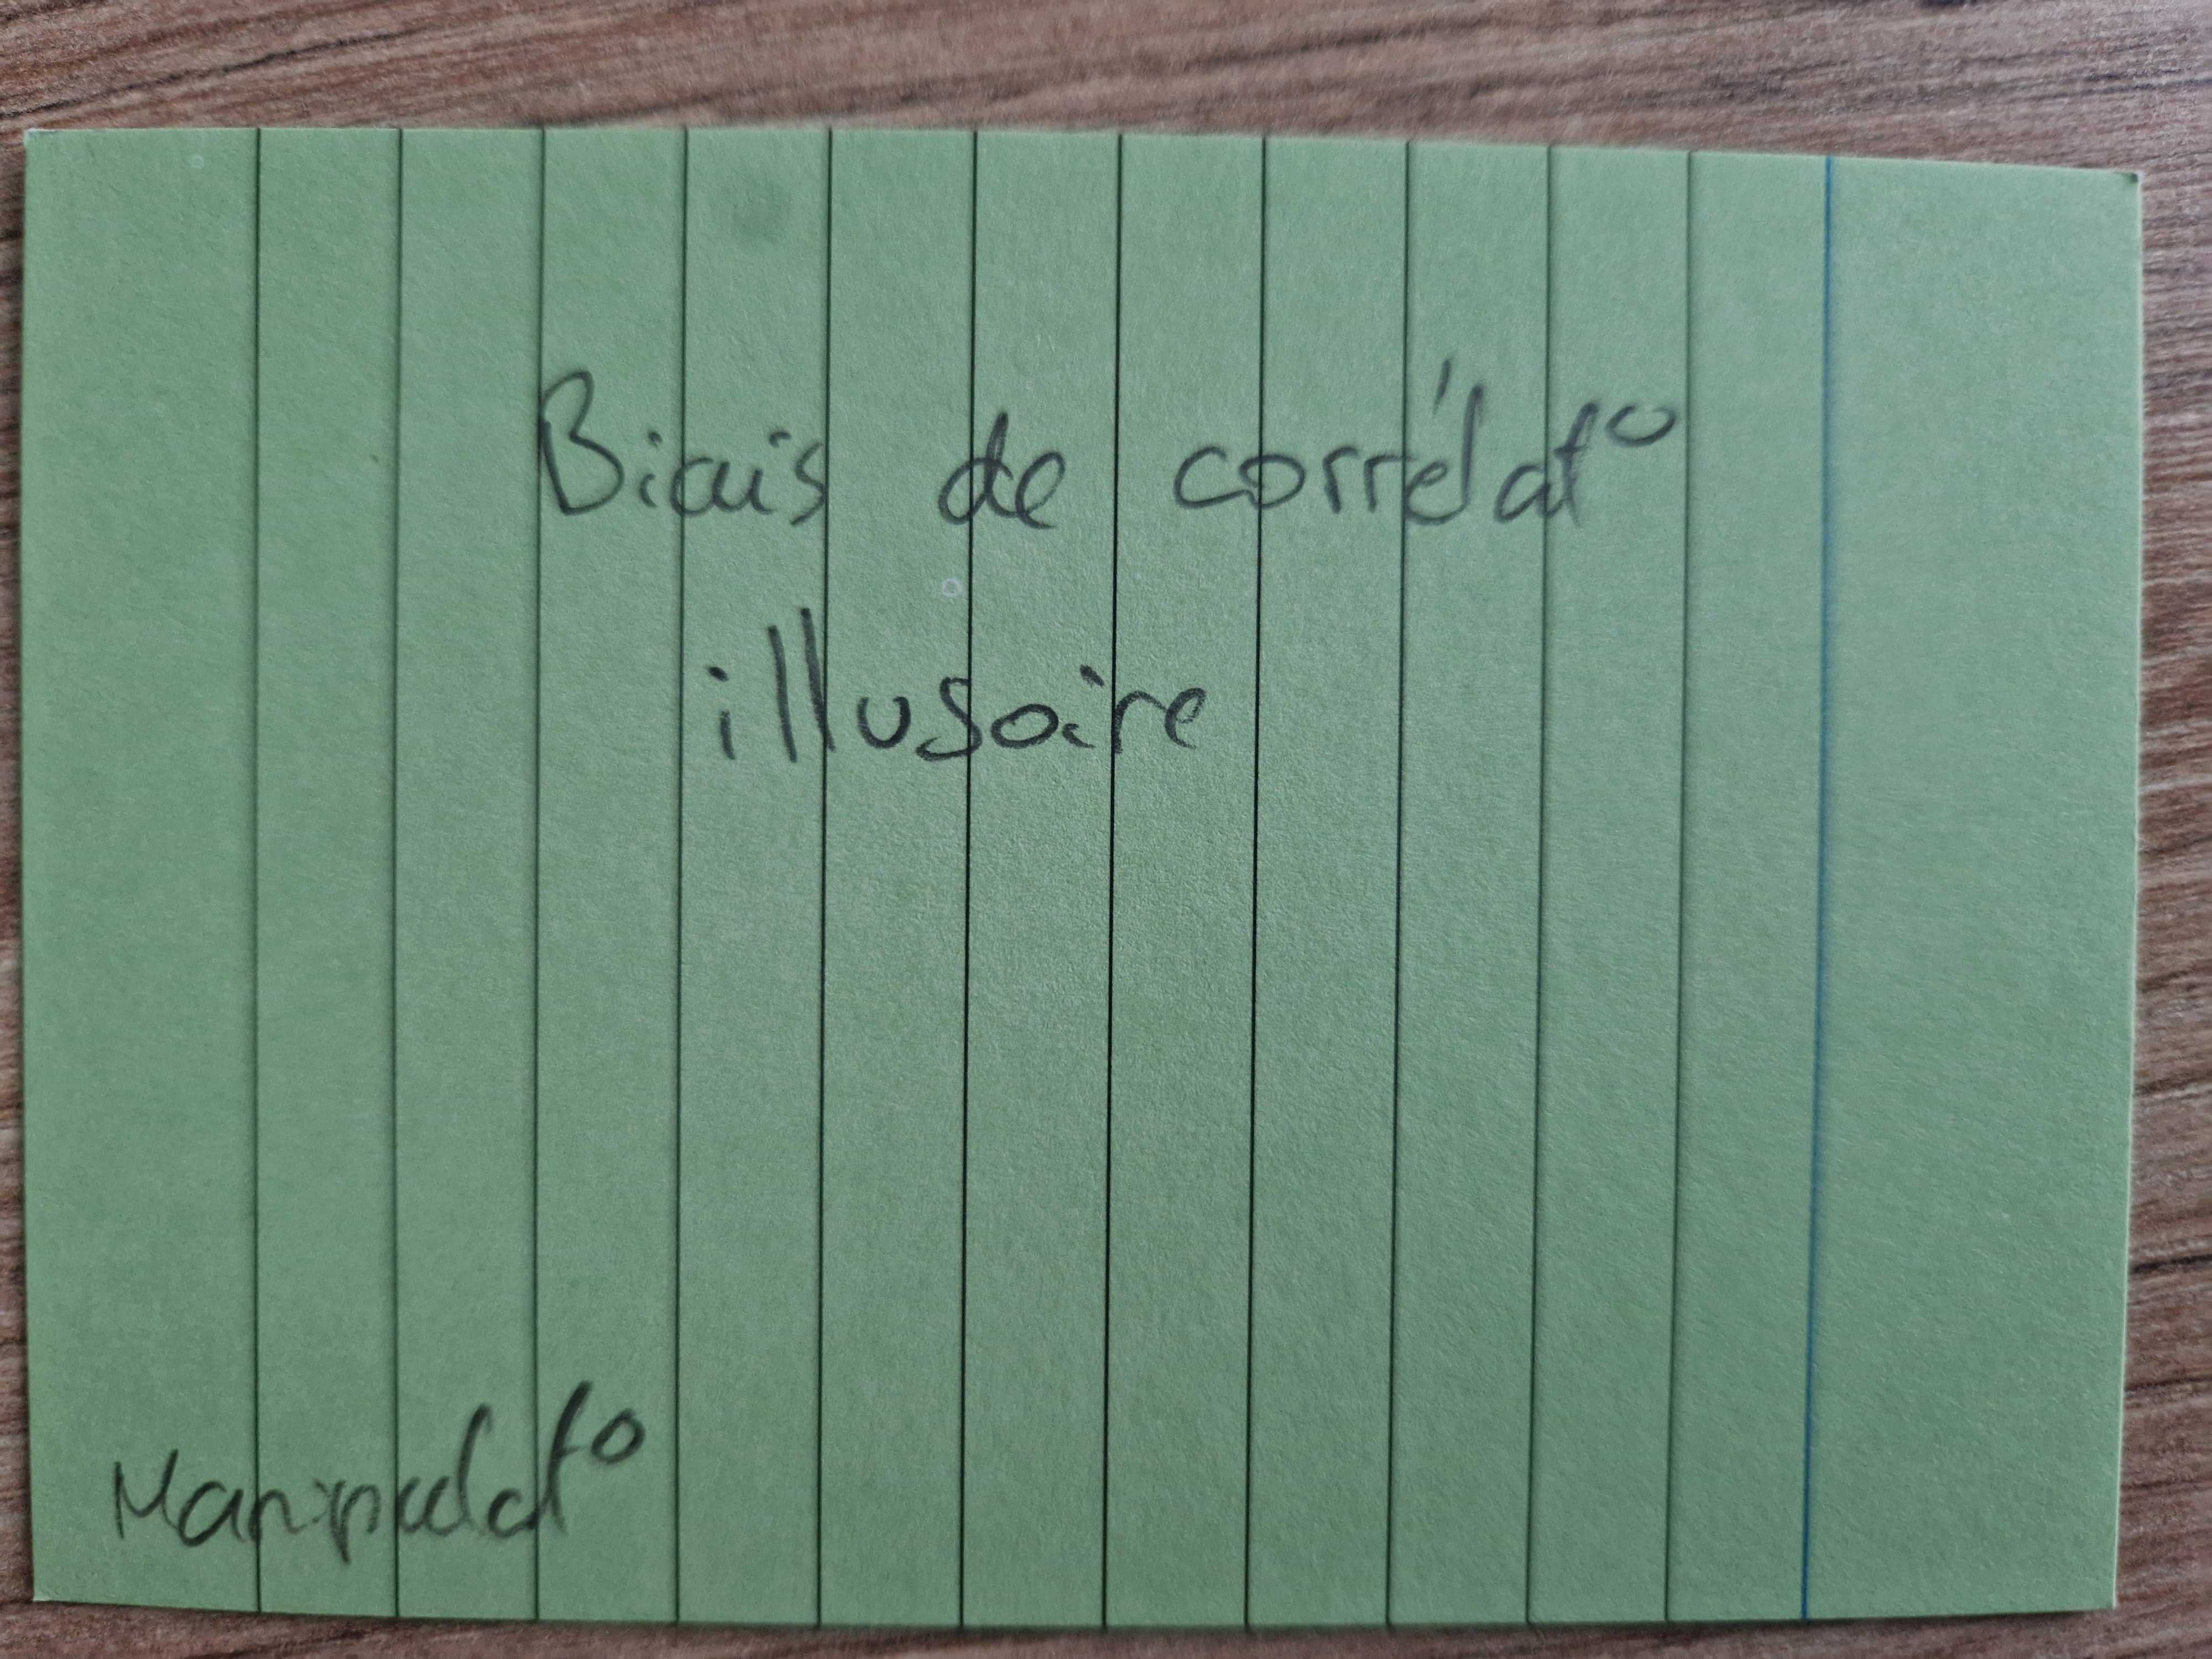 Biais de corrélat°
illusoire
Manipulat°